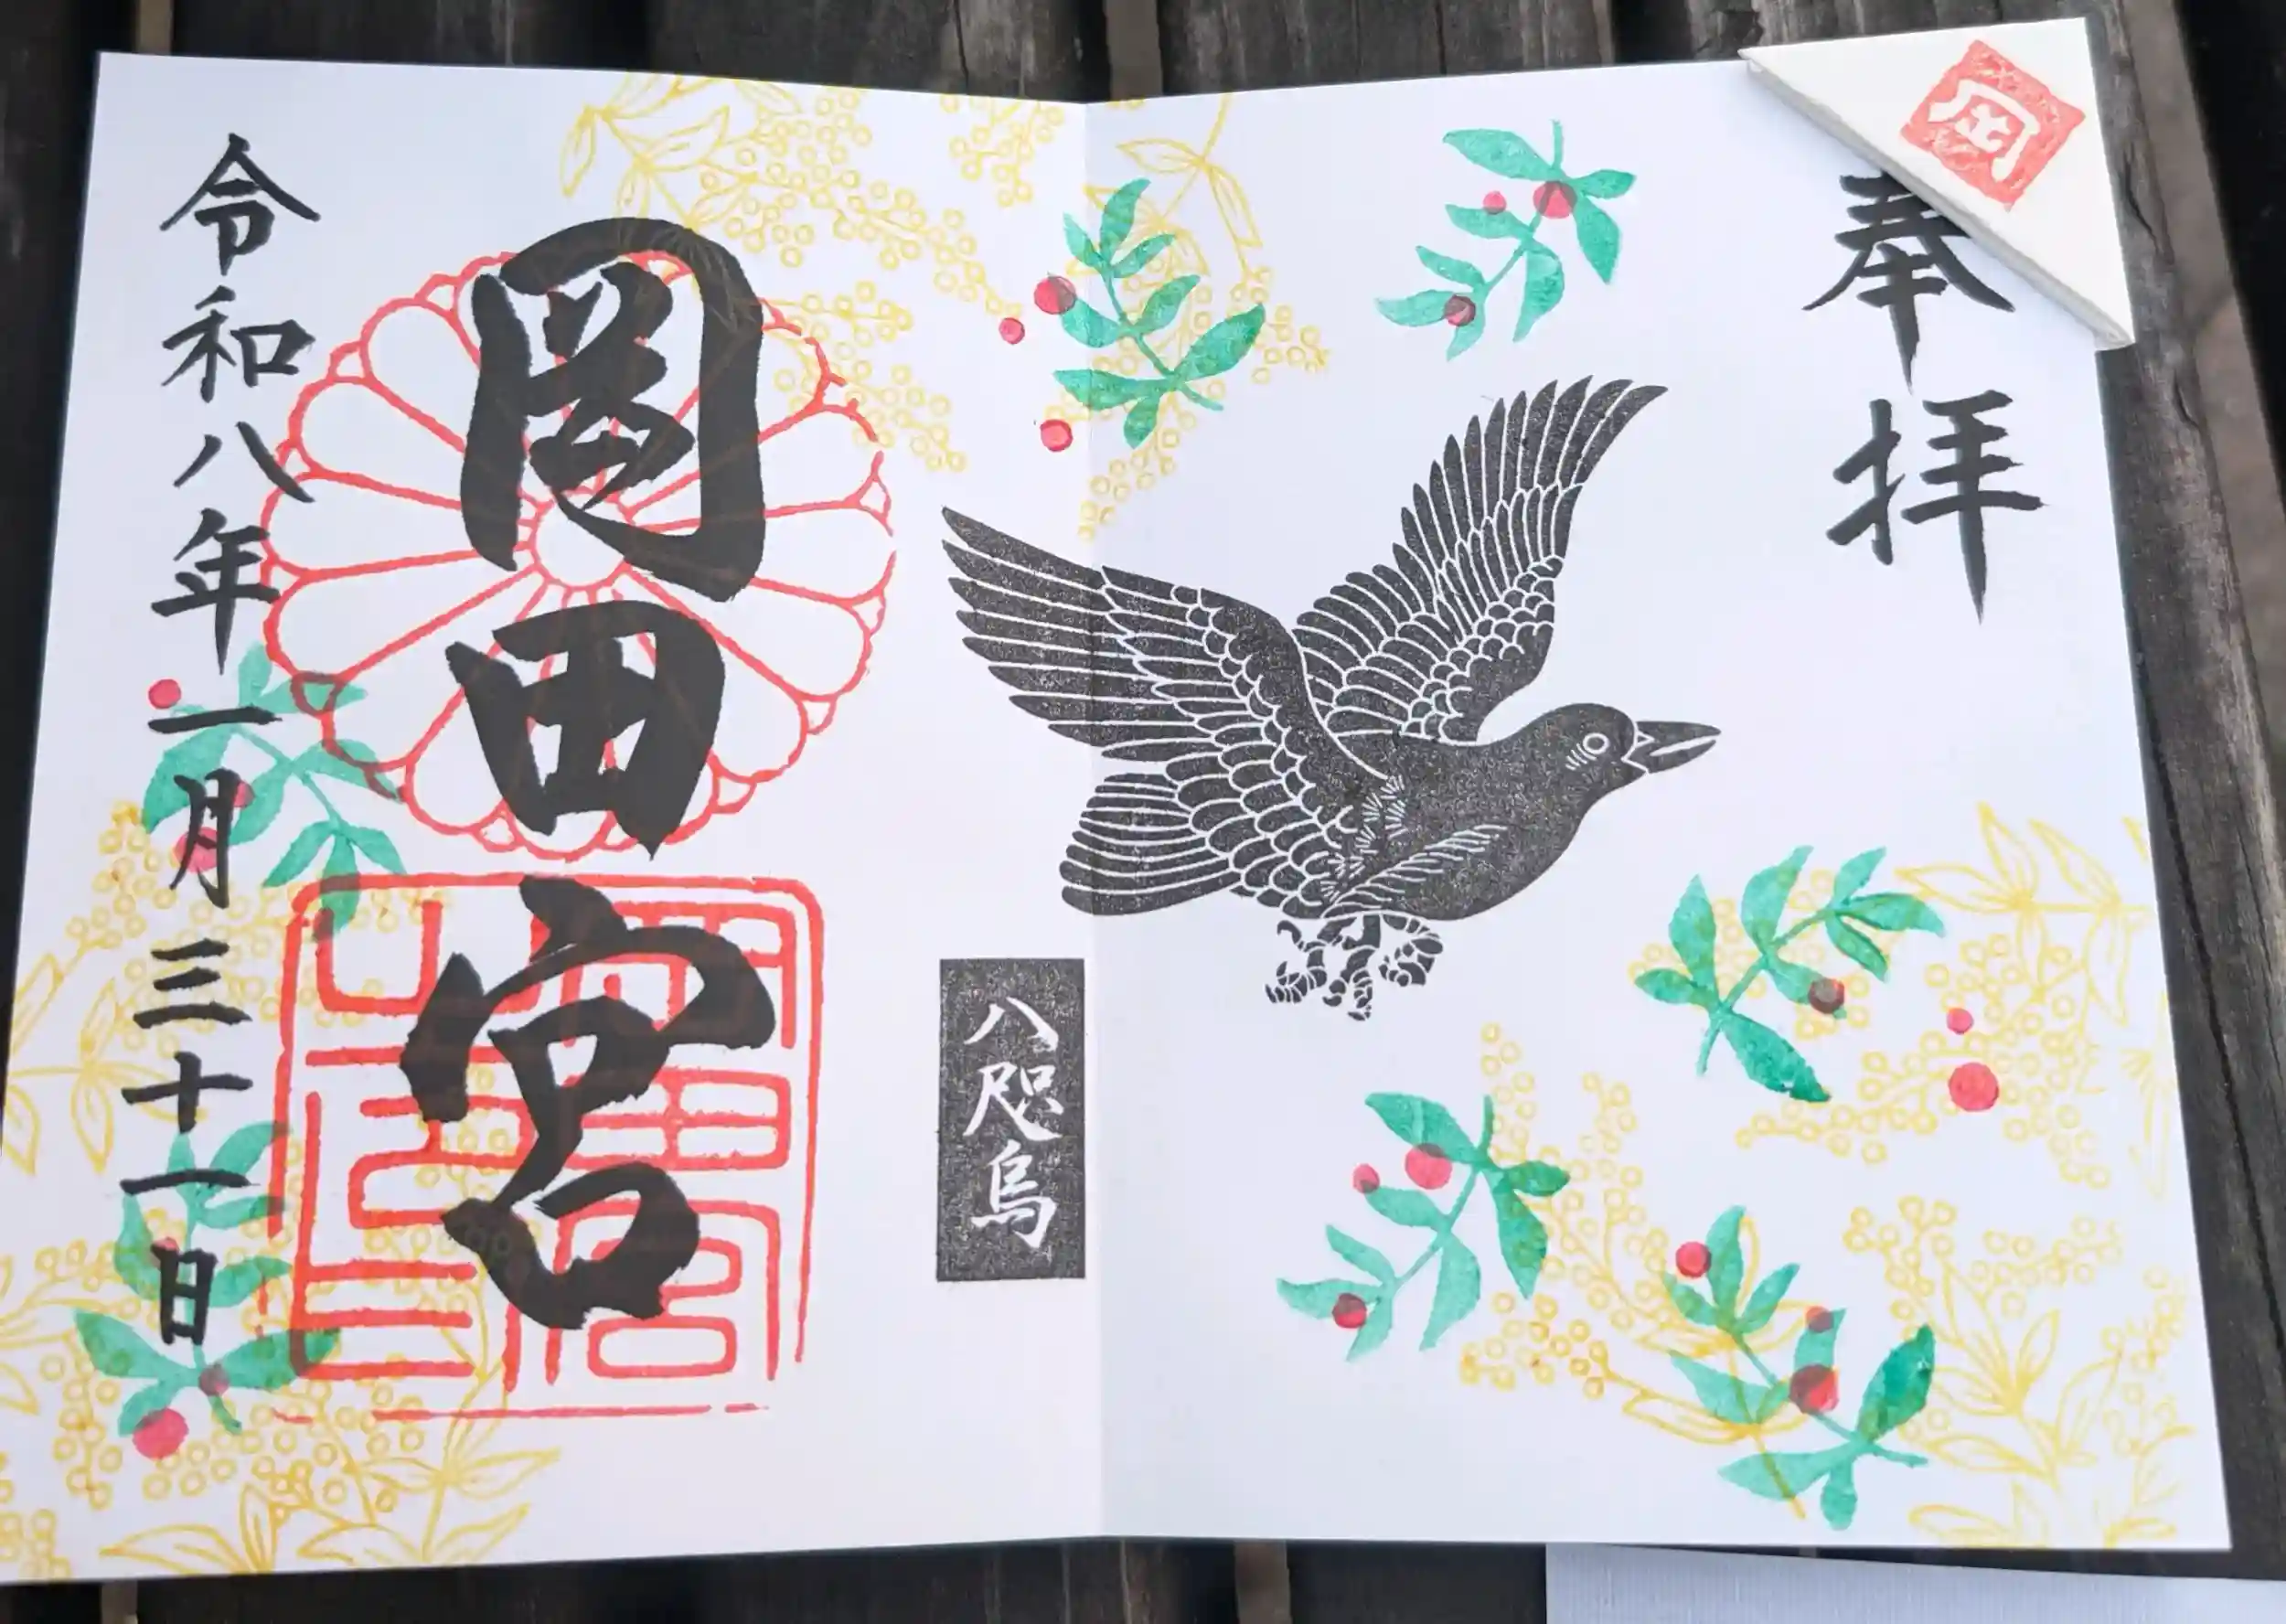 岡
奉拝
八咫烏
岡田宮
令和八年一月三十一日